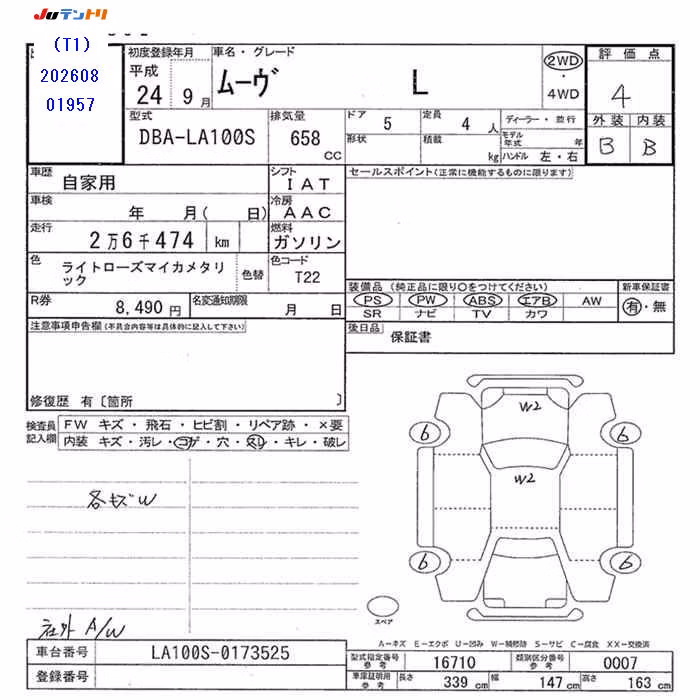 JUテントリ
(T1)
202608
01957
初度登録年月
平成
24 9月
車名・グレード
ムーヴ L
2WD
・
4WD
評価点
4
外装 内装
B B
型式
DBA-LA100S
排気量
658 CC
ドア 5
形状
定員 4 人
積載 kg
ディーラー・並行
モデル年式 年
ハンドル 左・右
車歴 自家用
シフト IAT
車検 年 月( 日)
冷房 AAC
走行 2万6千474 km
燃料 ガソリン
色 ライトローズマイカメタリック
色替
色コード T22
R券 8,490円
名変通知期限 月 日
セールスポイント(正常に機能するものに限ります)
装備品 (純正品に限り○をつけてください)
PS PW ABS エアB AW
SR ナビ TV カワ
新車保証書
有・無
後日品 保証書
注意事項申告欄(不具合内容等は具体的に記入して下さい)
修復歴 有〔箇所 〕
検査員記入欄
FW キズ・飛石・ヒビ割・リペア跡・×要
内装 キズ・汚レ・コゲ・穴・スレ・キレ・破レ
各キズW
社外 A/W
W2
6 6
W2
6 6
スペア
A-キズ E-エクボ U-凹み W-補修跡 S-サビ C-腐食 XX-交換済
車台番号 LA100S-0173525
登録番号
型式指定番号参考 16710
類別区分番号参考 0007
車庫証明用参考 長さ 339 cm 幅 147 cm 高さ 163 cm